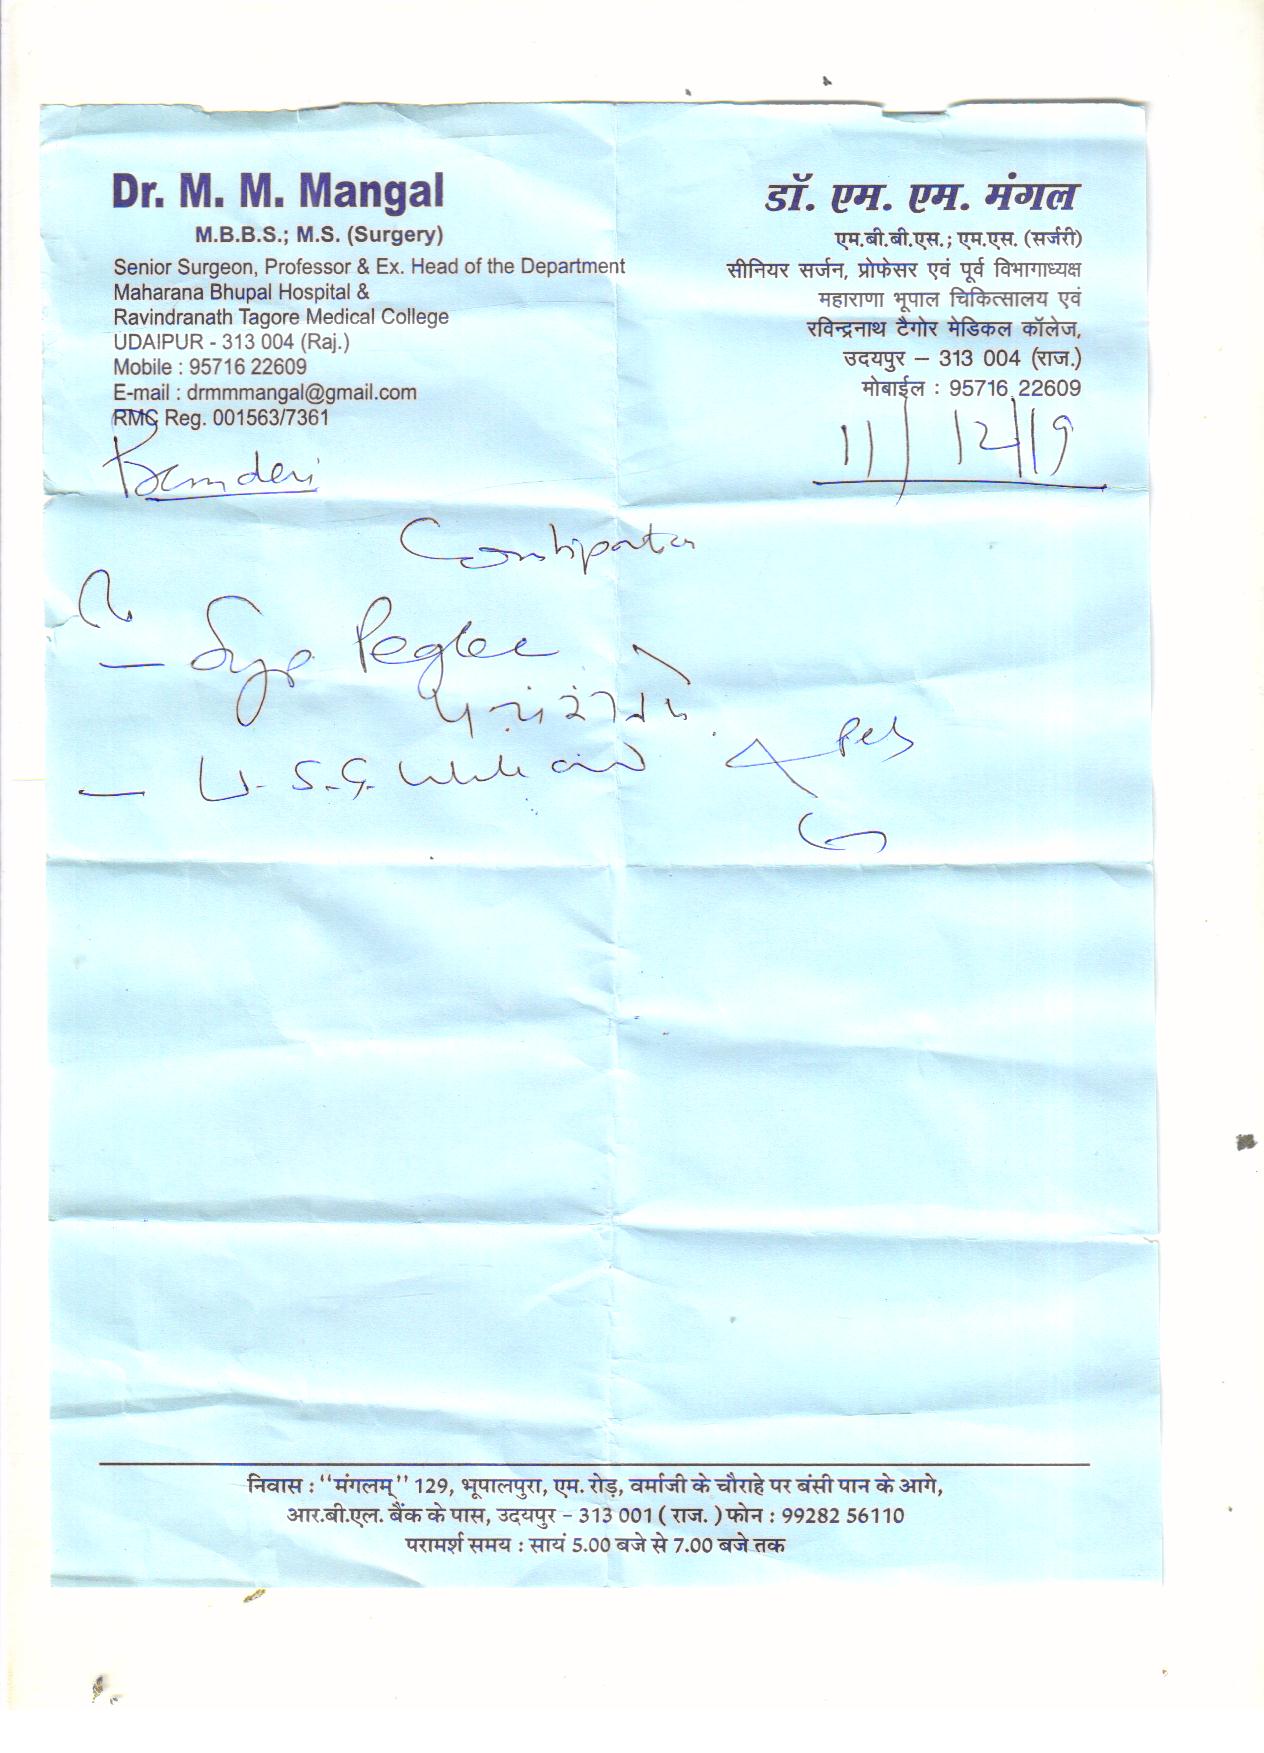 Dr. M. M. Mangal
M.B.B.S.; M.S. (Surgery)
Senior Surgeon, Professor & Ex. Head of the Department
Maharana Bhupal Hospital &
Ravindranath Tagore Medical College
UDAIPUR - 313 004 (Raj.)
Mobile : 95716 22609
E-mail : drmmmangal@gmail.com
RMC Reg. 001563/7361
डॉ. एम. एम. मंगल
एम.बी.बी.एस.; एम.एस. (सर्जरी)
सीनियर सर्जन, प्रोफेसर एवं पूर्व विभागाध्यक्ष
महाराणा भूपाल चिकित्सालय एवं
रविन्द्रनाथ टैगोर मेडिकल कॉलेज,
उदयपुर – 313 004 (राज.)
मोबाईल : 95716 22609
11/12/19
Syp. Peglec
- U.S.G. whole
निवास : "मंगलम्" 129, भूपालपुरा, एम. रोड़, वर्माजी के चौराहे पर बंसी पान के आगे,
आर.बी.एल. बैंक के पास, उदयपुर – 313 001 ( राज. ) फोन : 99282 56110
परामर्श समय : सायं 5.00 बजे से 7.00 बजे तक